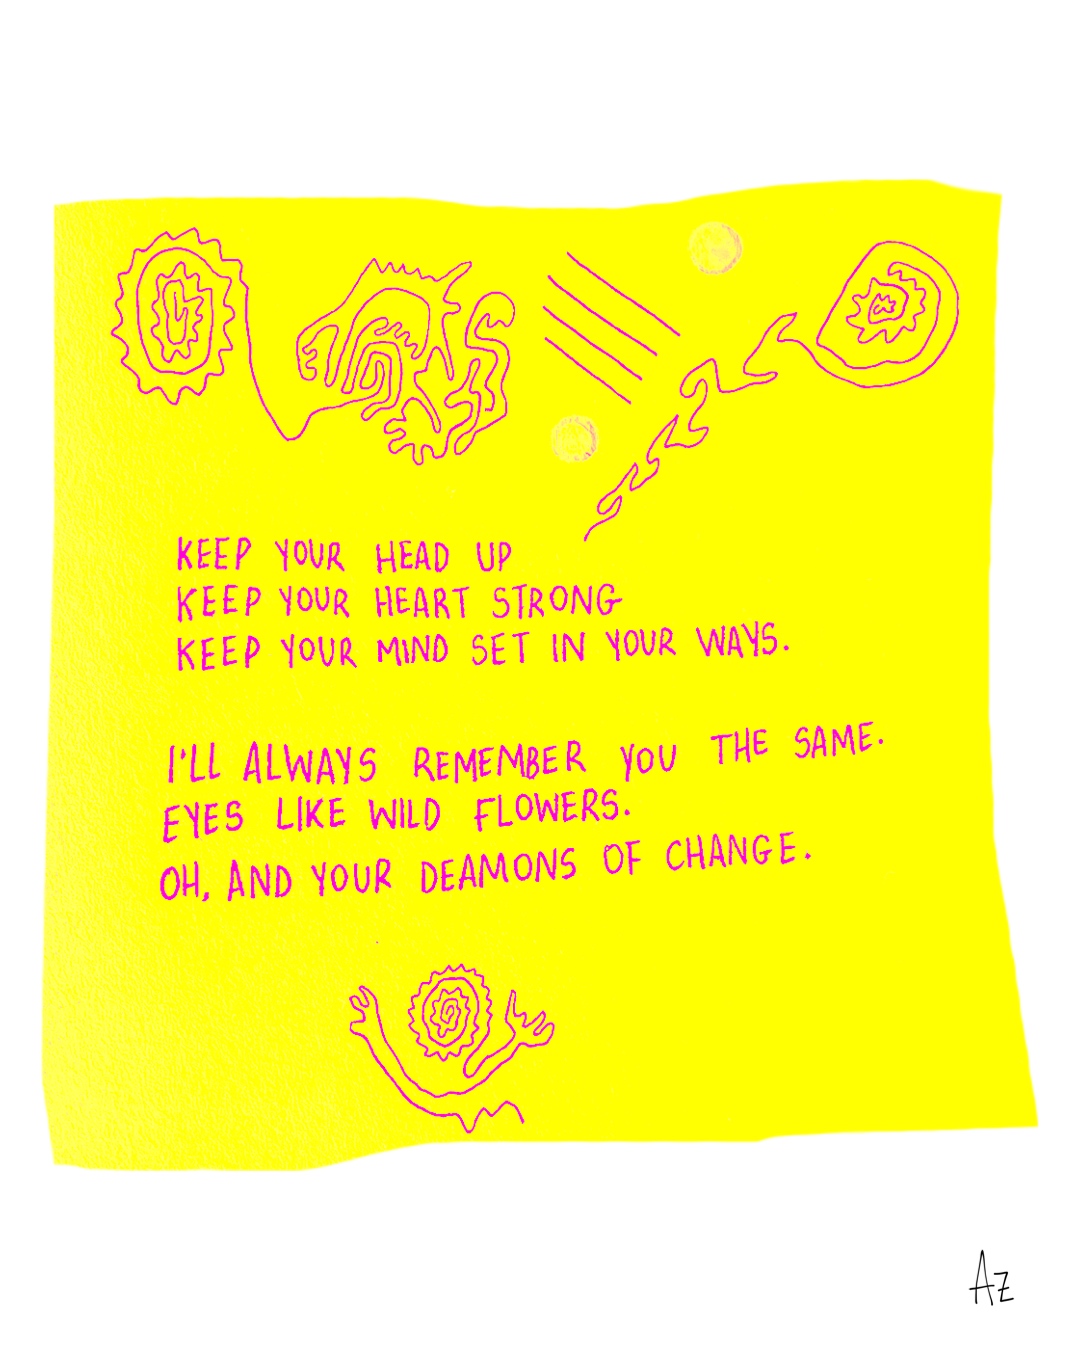 KEEP YOUR HEAD UP
KEEP YOUR HEART STRONG
KEEP YOUR MIND SET IN YOUR WAYS.
I'LL ALWAYS REMEMBER YOU THE SAME.
EYES LIKE WILD FLOWERS.
OH, AND YOUR DEAMONS OF CHANGE.
AZ